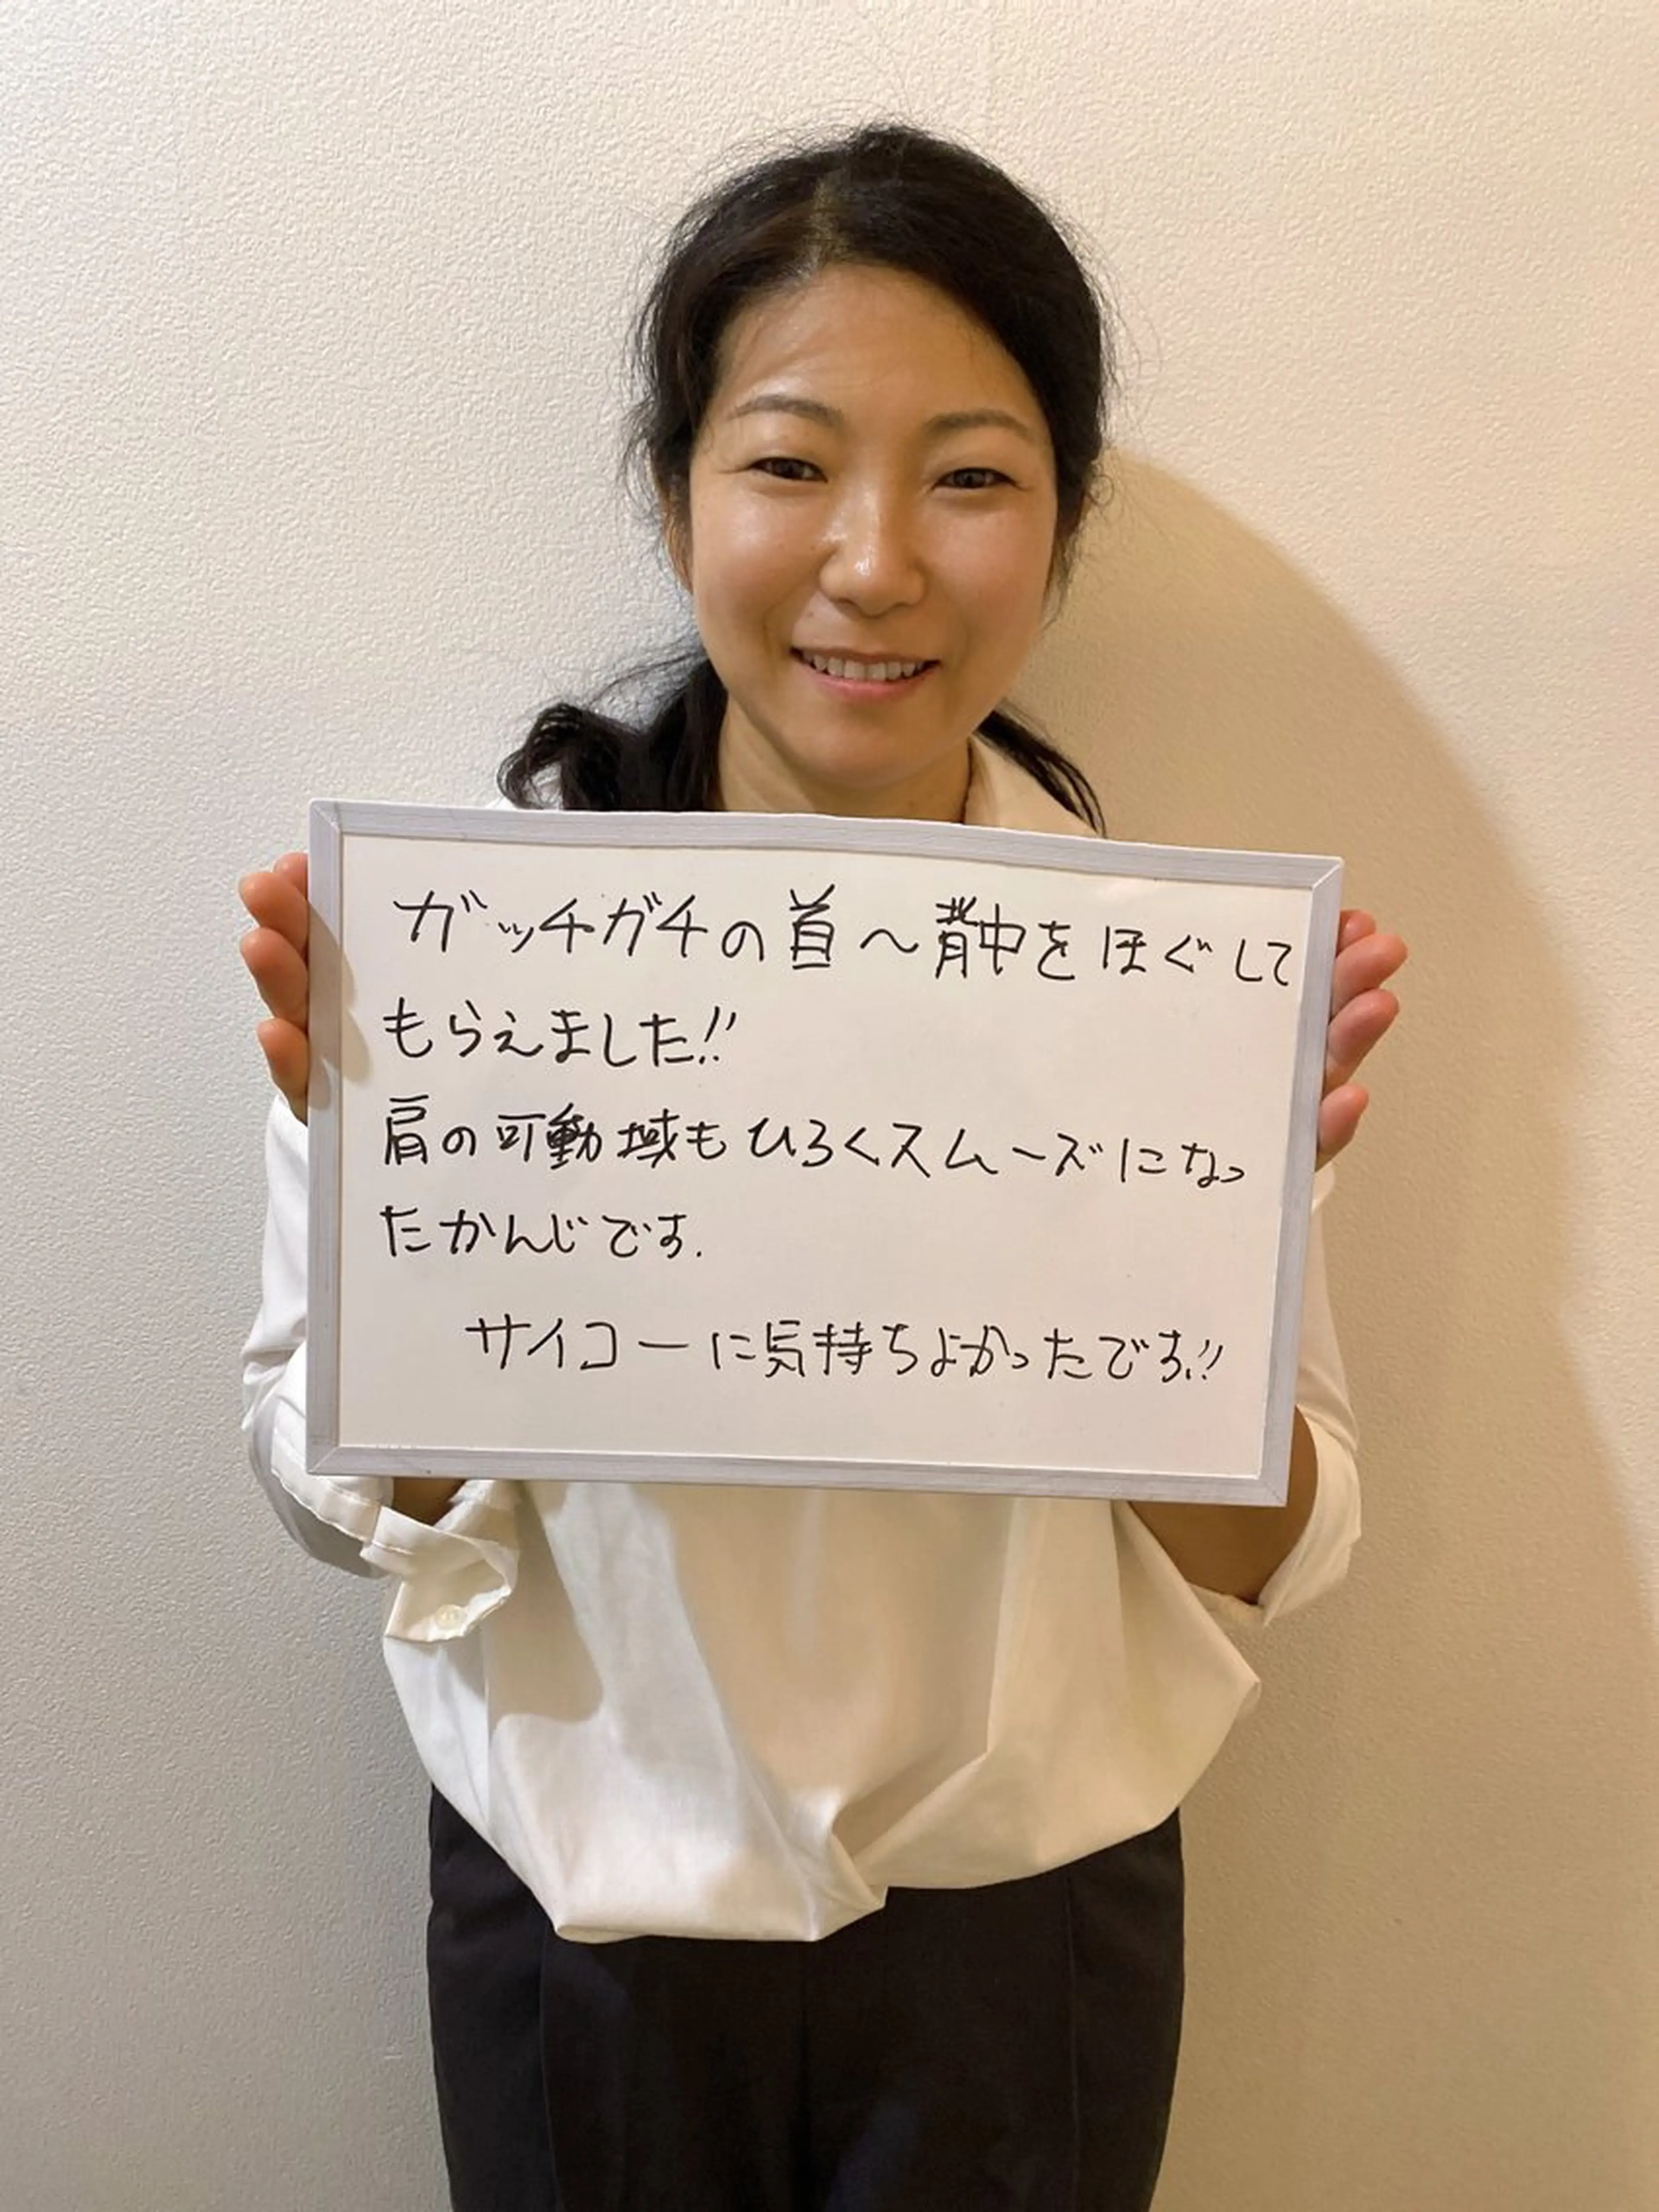 ガッチガチの首〜背中をほぐして
もらえました!!
肩の可動域もひろくスムーズになっ
たかんじです.
サイコーに気持ちよかったです!!